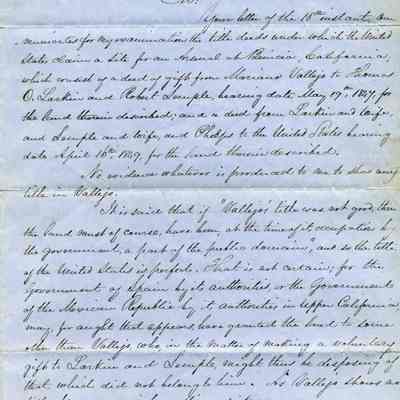 Sir:
Your letter of the 18th instant, com
municates for my examination the title deeds under which the United
States claim a site for an Arsenal at Benicia, California,
which consist of a deed of gift from Mariano Vallejo to Thomas
O. Larkin and Robert Semple, bearing date May 19th 1847, for
the land therein described; and a deed from Larkin and Wife,
and Semple and Wife, and Phelps to the United States bearing
date April 16th 1849, for the land therein described.
No evidence whatever is produced to me to show any
title in Vallejo.
It is said that if "Vallejo's title was not good, then
the land must of course, have been, at the time of its occupation by
the government, a part of the public domain", and so the title
of the United States is perfect. That is not certain; for the
Government of Spain by its authorities, or the Government
of the Mexican Republic by its authorities in Upper California
may, for aught that appears, have granted the land to some
other than Vallejo, who, in the matter of making a voluntary
gift to Larkin and Semple, might thus be disposing of
that which did not belong to him. As Vallejo shows no